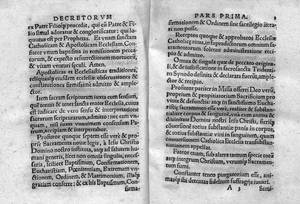 DECRETORVM
ex Patre Filioq; procedit, qui cū Patre & Fi-
lio simul adoratur & conglorificatur: qui lo-
cutus est per Prophetas. Et vnam sanctam
Catholicam & Apostolicam Ecclesiam. Con-
fiteor vnum baptisma in remissionem pecca-
torum, & expecto resurrectionem mortuorū,
& vitam venturi seculi. Amen.
Apostolicas et Ecclesiasticas traditiones,
reliquasq; eiusdem ecclesiæ obseruationes &
constitutiones firmissimè admitto & ample-
ctor.
Item sacram scripturam iuxta eum sensum,
quem tenuit & tenet sancta mater Ecclesia,
cuius est iudicare de vero sensu & interpre-
tatione sacrarum scripturarum, admitto: nec
eam vnquam, nisi iuxta vnanimem consensum
Patrum accipiam & interpretabor.
Profiteor quoque septem esse verè & pro-
priè Sacramenta nouæ legis, à Iesu Christo
Domino nostro instituta, atque ad salutem hu-
mani generis, licet non omnia singulis necessa-
ria, scilicet Baptismum, Confirmationem,
Eucharistiam, Pœnitentiam, Extremam
vnctionem, Ordinem, & Matrimonium, illaq;
gratiam conferre: & ex his Baptismum, Con-
firma-
PARS PRIMA.
firmationem & Ordinem sine sacrilegio iterari
non posse.
Receptos quoque & approbatos Ecclesiæ
Catholicæ ritus, in supradictorum omnium sa-
cramentorum solemni administratione recipio
& admitto.
Omnia & singula quæ de peccato originali,
& de iustificatione in sacrosancta Tridenti-
na Synodo definita & declarata fuerunt, ample-
ctor & recipio.
Profiteor pariter in Missa offerri Deo verum,
proprium & propitiatorium sacrificium pro
viuis & defunctis: atque in sanctissimo Eucha-
ristiæ sacramento esse verè, realiter & substan-
tialiter corpus & sanguinem, vnà cum anima
& diuinitate Domini nostri Iesu Christi, fieriq;
conuersionem totius substantiæ panis in corpus,
& totius substantiæ vini in sanguinem, quam
conuersionem Catholica Ecclesia Transsubstan-
tiationem appellat.
Fateor etiam sub altera tantum specie totum
atq; integrum Christum, verumq; Sacramen-
tum sumi.
Constanter teneo purgatorium esse, anima-
sq; ibi detentas fidelium suffragijs iuuari.
A 3
Simi-